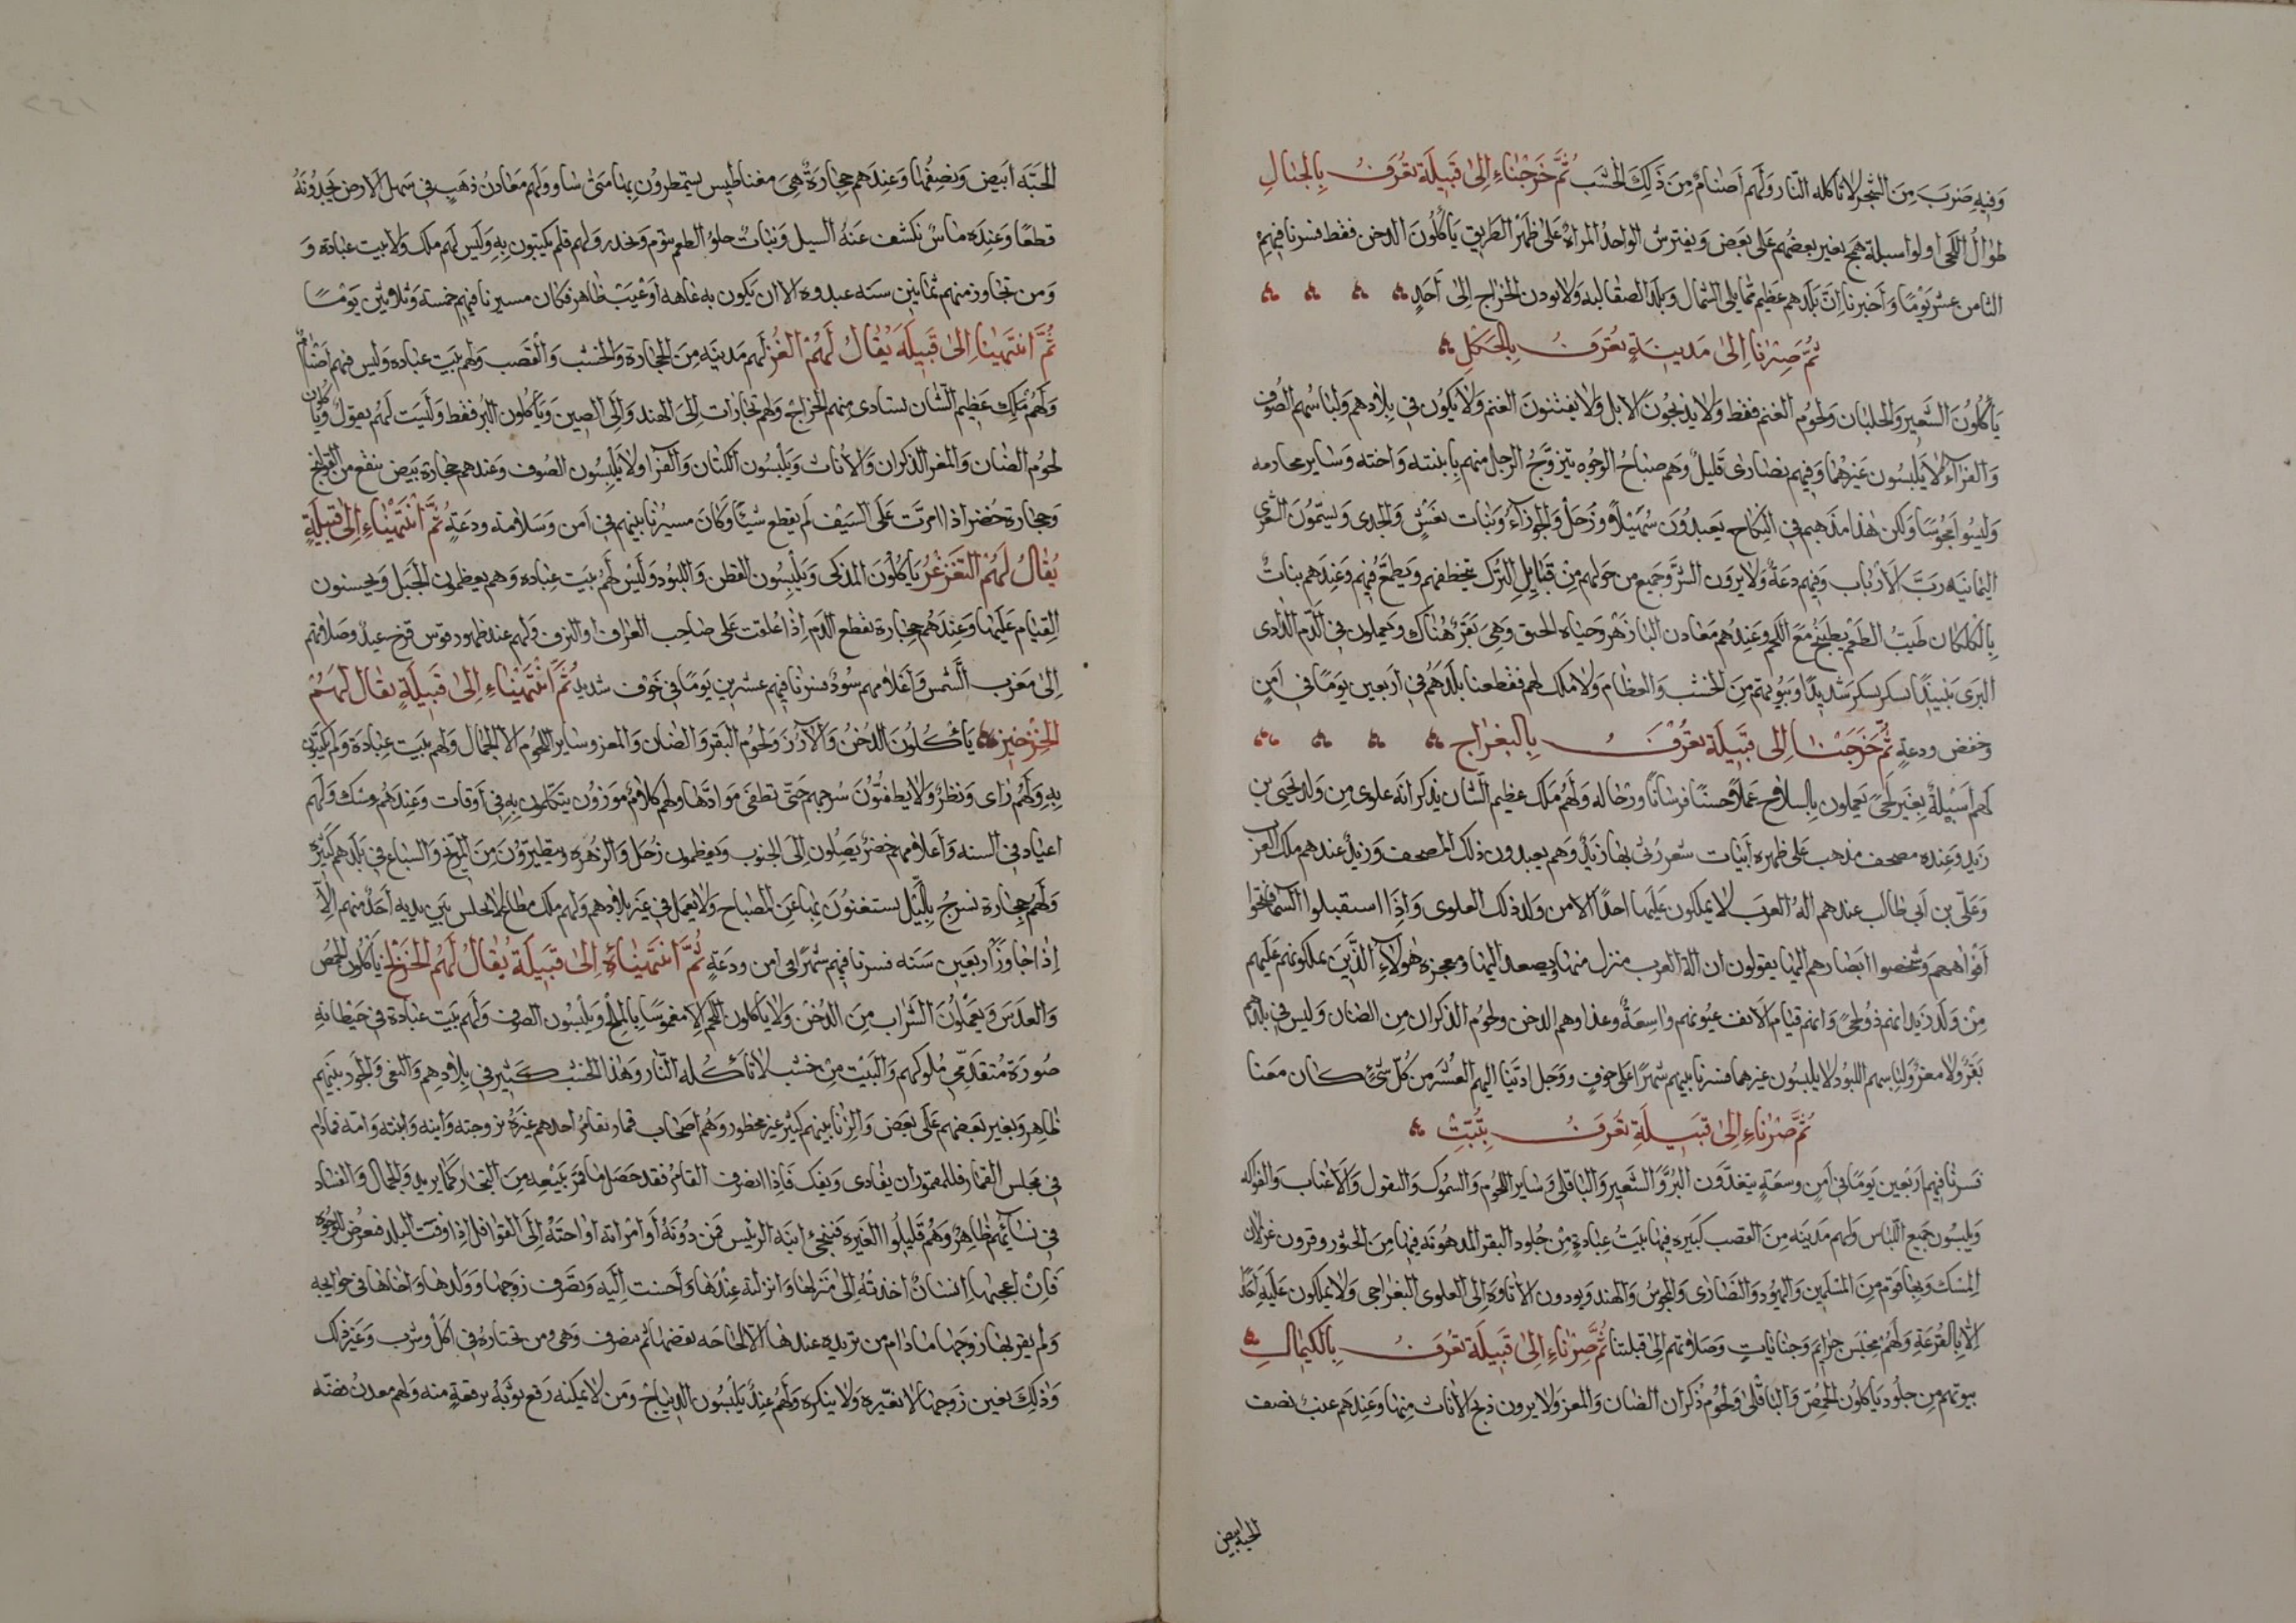 وَفيهِ ضَربَ مِنَ الشجر لا تاكله النّار وَلَهُم اَصنامٌ مِنَ ذَلِكَ الخشَب ثُمَّ خَرَجْنَاءِ اِلىٰ قَبيلَة تعُرَفُ بِالجنٰالِ
طوٰالُ اللّحَى اولوا اسبلة هَمج يغير بعضُهم عَلى بَعض وَيفترش الواحدُ المراة عَلى ظَهْر الطريق يَأكُلُونَ الدخن فقط فسرنا فيهِمْ
الثامن عشر يَوْمًا وَاَخبرنا اِنَّ بَلَدهم عَظيم ممّا يلى الشمال وَبلَد الصقالبه وَلا يودن الخراج اِلى اَحَدٍ
ثمّ صِرْنا اِلىٰ مَدينَةٍ تعُرَفُ بِالجكلِ
يَأكُلُونَ الشَعير وَالجلبان وَلحوُم الغنم فقط وَلا يذبحُونَ الابل وَلا يقتنونَ الغنم وَلا يكوُن فى بِلادهم وَلباسُهم الصُّوف
وَالفِرَاءُ لا يلبسُون غيرهما وَفيهم نصٰارىٰ قَليلٌ وَهم صباحُ الوجُوه يَتزوّجُ الرجلُ منهم بِابنته وَاخته وَسٰاير محارمه
وَليسُوا مجُوسًا وَلكن هٰذا مَذهبهم فى النِكاح يَعبدُوُنَ سُهَيْلًا وَزُحَلَ وَالجوزآءَ وَبَنات نعَشٍ وَالجدى وَيسمّوُنَ الشعرى
اليمانيَه ربَّ الاَرباب وَفيهم دعَةٌ وَلا يرَوَن الشّرّ وَجَميع من حَولهم مِنْ قَبايل التُرك يتخطفهم وَيَطمعُ فيهم وَعندَهم نباتٌ
بِالكلكان طَيّبُ الطَعْم يطبَخُ مَعَ اللحم وَعندهُم مَعٰادن البٰازَهْر وَحياه الحبق وَهى بَقرٌ هُناك وَيعملون فى الدَّم الداذى
البرى نبيذًا يسكر سكر شديدًا وَبيُوتهم مِنَ الخشب وَالعظٰام وَلا ملك لهم فقطعنا بلدَهم فى اَربعين يَومًا فى اَمنٍ
وخفض ودعةٍ ثُمَّ خَرَجنَا اِلى قَبّيلَة تعُرفُ بِالبغرٰاج
لَهم اَسَبلةٌ بغير لَحىً يَعملون بِالسلاح عَملًا حسنًا فرسانًا ورجٰاله وَلَهمُ مَلك عظيم الشان يَذكر انه علوى من وَلَد يَحَيى بن
زيد وَعِندهِ مصحف مذهب عَلى ظهره اَبيَات شعر رُثِى بها زيَدٌ وَهم يعبدون ذلك المصحف وَزيدٌ عندهم ملك العرَب
وَعَلىّ بن اَبى طالب عندهم الهُ العَرب لا يملكون عَليهم احدًا الا من وَلد ذلك العلوى وَاذَا استقبلوا السما فتحوا
اَفواههم وَشخصوا ابَصٰارهم اليها يقولون ان الهَ العرب ينزل منها وَيصعد اليها ومعجزه هٰولاَءِ الذَّيِن يملكونهم عَليهم
مِنْ وَلد زيد انهم ذووُ لِحىً وَانهم قيام الاَنف عيُونهم وٰاسِعَةٌ وغذاوهم الدخن ولحوُم الذكران من الضان وَليس فى بلدهم
بَقَرٌ وَلا معزٌ وَلباسهم اللبُود لا يلبسُون غيرهما فسرنا بينهم شهرًا عَلى خوفٍ ووَجل ادّينا اليهم العُشر من كُلّ شئٍ كان معَنا
ثمَّ صْرناءِ اِلىٰ قبَيلَةٍ تعُرَفُ بِتُبّتِ
فسرنٰا فيهم اَربعين يَومًا فى اَمن وسعَةٍ يتغدّون البُرّ وَالشَعير وَالباقلى وَسٰاير اللحُوم وَالسموُك وَالبقول وَالاَعناب وَالفوٰاكه
وَيلبسُون جَميع اللبٰاس وَلهم مَدينَه مِنَ القصب كَبيره فيهٰا بيَتُ عِبادةٍ مِنْ جُلود البقر المدهُونه فيها مِنَ الحنور وقرون غزلان
المِسك وَبهٰا قوم مِنَ المسْلمين وَاليهُود وَالنصٰارى وَالمجوس وَالهند وَيودون الاتاوة اِلى العلوى البَغراجى وَلا يملكون عَليهِ احدًا
الّا بِالقُرعَةِ وَلَهُم مَجْلس جَرائم وَجنايَاتٍ وَصَلاتهم اِلى قبلتنا ثمّ صِرنَاءِ اِلىٰ قَبيلَة تعُرَفُ بِالكيمٰاكِ
بيوتهم من جلُود يَاكلُون الحِمّص وَالباقْلىٰ وَلحُومُ ذكران الضان وَالمعز وَلا يرون ذبح الاناث مِنها وَعِندهم عنب نصف
الحبه ابيض
الحَبَّه اَبيَض وَنصِفُها وَعِندَهم حِجارَةٌ هِىَ مغناطيس يستمطروُن بِهٰا مَتىٰ شاو وَلَهم مَعٰادنُ ذهَبٍ فى سَهل الارض يَجدوُنَهُ
قطعًا وَعِنده ماسٌ نكشف عَنهُ السيل وَنباتٌ حلوُ الطعم ينوّم وَيخدر وَلهم قلم يكتبون بِهِ وَليَس لَهم ملك وَلا بيت عباده وَ
وَمن تجٰاوز منهم ثمانين سَنه عبدوه الا ان يَكون به عاهه اَوْ عَيبْ ظٰاهر فكان مسيرنا فيهم خمسه وَثلاثين يَوْمًا
ثُمَّ انْتهيْنا اِلىٰ قَبيلَه يُقٰالُ لَهُمْ الْغُزّ لَهم مَدينَه مِنَ الحجارة وَالخشب وَالقصب وَلهُم بَيَت عباده وَليس فيهم اَصْنٰامٌ
وَلهُم مَلِك عَظيم الشان يستادى منهم الخراج وَلهم تجٰارات اِلى الهند وَاِلى الصين وَيَأكلون البُر فقط وَليَست لَهُم بقوُل وَيأكلون
لحوُم الضٰان وَالمعز الذكران وَالاناث وَيلبسُون الكتان وَالفرٰا وَلا يَلبسُون الصُوف وَعندهم حجارة بيض ينفع من القولنج
وَحجارة خُضر اذا امرّت عَلَى السَيف لَم يقطع شيئًا وَكانَ مسيْرُنا بينهم فى اَمن وَسَلامة ودعَةٍ ثُمَّ انْتَهيْنٰاءِ اِلىٰ قَبيلَةٍ
يُقٰالُ لَهُمْ التَغَزْغُرْ يَأكُلوْنَ المذكى وَيَلْبِسُون القطن وَاللبُود وَليْس لَهُم بيَت عِباده وَهم يعظمون الخَيل وَيحسنون
القِيام عَليها وَعِندَهُم حِجٰارة يقطع الدَم اِذَا عُلقت عَلى صٰاحِب الرُعاف او النزف وَلهم عند ظهور قوس قزح عيدٌ وصَلاتهم
اِلىٰ مَغرب الشمس وَاَعلامهم سُودٌ فسرنٰا فيهم عشرين يَومًا فى خَوف شديدٍ ثُمَّ انْتهَينٰاءِ اِلىٰ قَبيلَةٍ يقٰال لَهُمْ
الخِرْخيز يَأكُلُونَ الدُخنُ وَالاَرُزّ وَلحُوم البَقر وَالضان وَالمعز وسٰاير اللحُوم الا الجمال وَلهم بَيَت عِبادة وَقلم يكتبون
بِهِ وَلهُم رٰاى وَنظرٌ وَلا يطفئُونَ سُرجهم حَتى تطفى مَوادّها وَلهُم كلامٌ موزوُن يتكلمُون بِهِ فى اَوقات وَعِندَهُم مِسك وَلَهم
اعياد فى السنه وَاَعلامهم خضرٌ يَصِلون اِلَى الجنوب وَيعظمون زُحلَ وَالزُهره وَيتطيرّوُن مِنَ المرّيخ وَالسباع فى بَلَدهم كَثيره
وَلَهُم حِجٰارة تسرج بِاللّيْل يستغنُونَ بِها عَنِ المصٰباح وَلا يعَمل فى غَير بلادهم وَلهم مَلك مطاعٌ لا يجلس بَيَن يديه اَحدٌ منهم اِلّا
اِذَا جاوَز اَربَعين سَنه فسرنا فيهم شهرًا فى امن ودعَةٍ ثُمَّ انتَهَيْنٰاءِ اِلىٰ قَبيلَةٍ يُقٰالُ لَهُم الخَزلج يَأكُلون الحِمّص
وَالعدَس وَيَعملُونَ الشَراب مِنَ الدُخن وَلا يأكلون اللحم الا مغموسًا بالملح وَيَلبسُون الصوف وَلَهم بَيت عبادة فى حَيْطانه
صُورَة مُتقدّمى مُلوكهم وَالبَيْت مِنْ خشب لا تأكُله النّار وَهذا الخشب كَثير فى بِلادهِم وَالبغى وَالجور بينهم
ظٰاهِر وَيغير بَعَضهم عَلى بَعَض وَالزنا بينهم كثير غير محظور وَهُم اَصحٰاب قمار يقامُر احدهم غيرَهُ بزوجته وَابنه وَابنته وَامه فمادٰام
فى مَجلس القمار فللمقمور ان يفٰادى وَيفك فَاِذا انصَرف القامُر فقد حَصَل لهُ ما قمَر يبيعه مِنَ التجٰار كَما يريد وَالجمال وَالفسٰاد
فى نسٰائِهم ظٰاهِرٌ وَهُم قَليلُوا الغيره فَتجئ ابنَه الرئيس فمن دُونَهُ اَو امراته او اخته اِلَى القوافل اِذا وٰافت البلد فتعرض للوجُوه
فَاِنْ اعجبها اِنسَانٌ اخذتُهُ اِلىٰ مَنزلها وَانزلته عِنْدهَا وَاَحسَنت اِليَه وَتصَرف زوَجها وَوَلدهَا وَاخاها فى حوايجه
وَلم يقربهٰا زوَجها مٰا دٰام من تريده عندهٰا الا لحٰاجَه يقضيهٰا ثم ينصرف وَهى وَمن تختاره فى اكلٍ وشرب وَغَير ذلك
وَذلِك بعَين زَوجهٰا لا يغيّره وَلا ينكره وَلَهُم عيدٌ يَلْبسُون الديباج وَمَن لا يمكنه رَقع ثوَبَهُ برقعةٍ منه وَلهم معدنُ فضّه